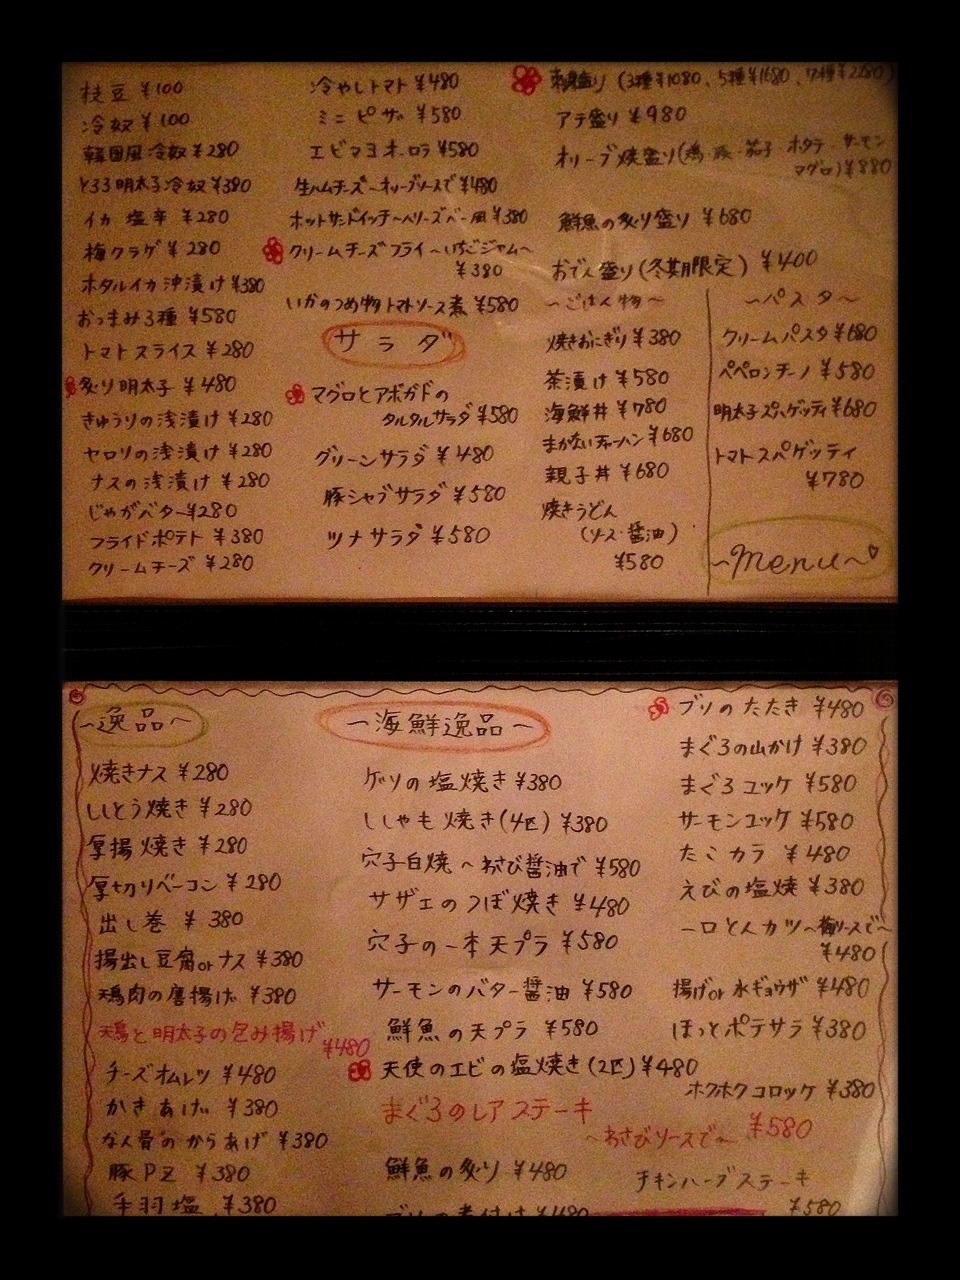 枝豆 ¥100
冷奴 ¥100
韓国風冷奴 ¥280
とろろ明太子冷奴 ¥380
イカ塩辛 ¥280
梅クラゲ ¥280
ホタルイカ沖漬け ¥380
おつまみ3種 ¥580
トマトスライス ¥280
炙り明太子 ¥480
きゅうりの浅漬け ¥280
セロリの浅漬け ¥280
ナスの浅漬け ¥280
じゃがバター ¥280
フライドポテト ¥380
クリームチーズ ¥280
冷やしトマト ¥480
ミニピザ ¥580
エビマヨオーロラ ¥580
生ハムチーズ〜オリーブソースで ¥480
ホットサンドイッチ〜ベリーズベー風 ¥380
クリームチーズフライ〜いちごジャム〜
¥380
いかのつめ物トマトソース煮 ¥580
サラダ
マグロとアボガドの
タルタルサラダ ¥580
グリーンサラダ ¥480
豚シャブサラダ ¥580
ツナサラダ ¥580
刺身盛り (3種¥1080、5種¥1680、7種¥2280)
アテ盛り ¥980
オリーブ焼盛り(鶏・豚・茄子 ホタテ・サーモン
マグロ) ¥880
鮮魚の炙り盛り ¥680
おでん盛り(冬期限定) ¥400
〜ごはん物〜
焼きおにぎり ¥380
茶漬け ¥580
海鮮丼 ¥780
まかないチャーハン ¥680
親子丼 ¥680
焼きうどん
(ソース・醤油)
¥580
〜パスタ〜
クリームパスタ ¥680
ペペロンチーノ ¥580
明太子スパゲッティ ¥680
トマトスパゲッティ
¥780
〜Menu〜♡
〜逸品〜
焼きナス ¥280
ししとう焼き ¥280
厚揚焼き ¥280
厚切りベーコン ¥280
出し巻 ¥380
揚出し豆腐orナス ¥380
鶏肉の唐揚げ ¥380
鶏と明太子の包み揚げ
¥480
チーズオムレツ ¥480
かきあげ ¥380
なん骨のからあげ ¥380
豚PZ ¥380
手羽塩 ¥380
〜海鮮逸品〜
ゲソの塩焼き ¥380
ししゃも焼き(4匹) ¥380
穴子白焼〜わさび醤油で ¥580
サザエのつぼ焼き ¥480
穴子の一本天プラ ¥580
サーモンのバター醤油 ¥580
鮮魚の天プラ ¥580
天使のエビの塩焼き(2匹) ¥480
まぐろのレアステーキ
〜わさびソースで〜 ¥580
鮮魚の炙り ¥480
ブリの煮付け ¥480
ブリのたたき ¥480
まぐろの山かけ ¥380
まぐろユッケ ¥580
サーモンユッケ ¥580
たこカラ ¥480
えびの塩焼 ¥380
一口とんカツ〜梅ソースで〜
¥480
揚げor水ギョウザ ¥480
ほっとポテサラ ¥380
ホクホクコロッケ ¥380
チキンハーブステーキ
¥580